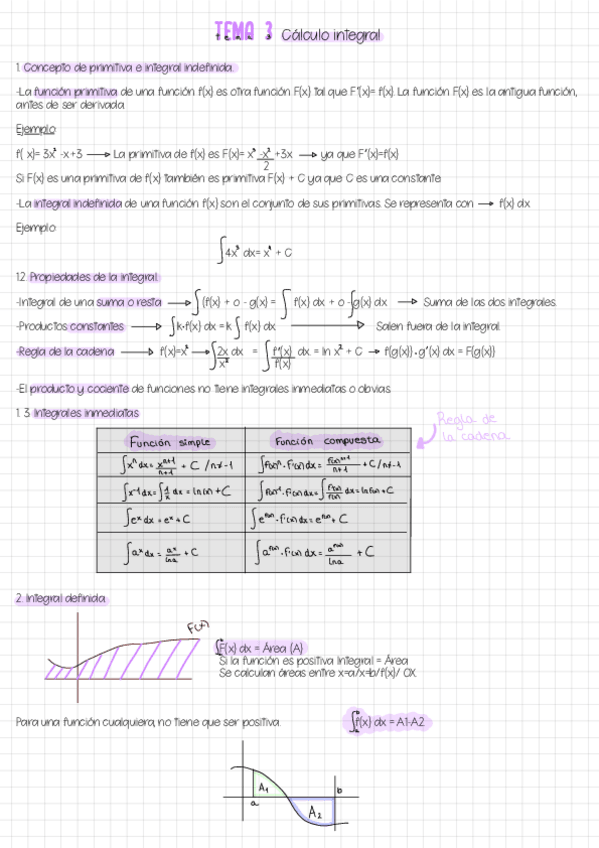 TEMA 3 Cálculo integral
1. Concepto de primitiva e integral indefinida.
-La función primitiva de una función f(x) es otra función F(x) tal que F'(x)= f(x). La función F(x) es la antigua función,
antes de ser derivada.
Ejemplo
f( x)= 3x² -x+3 → La primitiva de f(x) es F(x)= x³ -x²/2 +3x → ya que F'(x)=f(x)
Si F(x) es una primitiva de f(x) también es primitiva F(x) + C ya que C es una constante
-La integral indefinida de una función f(x) son el conjunto de sus primitivas. Se representa con → f(x) dx
Ejemplo:
∫4x³ dx= x⁴ + C
1.2. Propiedades de la integral.
-Integral de una suma o resta → ∫(f(x) + o - g(x) = ∫ f(x) dx + o -∫g(x) dx → Suma de las dos integrales.
-Productos constantes → ∫k·f(x) dx = k∫ f(x) dx → Salen fuera de la integral
-Regla de la cadena → f(x)=x² → ∫2x/x² dx = ∫f'(x)/f(x) dx = ln x² + C → f(g(x))·g'(x) dx = F(g(x))
-El producto y cociente de funciones no tiene integrales inmediatas o obvias.
1. 3. Integrales inmediatas
Regla de
la cadena
Función simple Función compuesta
∫xⁿ dx = xⁿ⁺¹/n+1 + C /n≠-1 ∫f(x)ⁿ · f'(x) dx = f(x)ⁿ⁺¹/n+1 + C/n≠-1
∫x⁻¹ dx = ∫1/x dx = ln(x) + C ∫f(x)⁻¹ · f'(x) dx = ∫f'(x)/f(x) dx = ln f(x) + C
∫eˣ dx = eˣ + C ∫e^f(x) · f'(x) dx = e^f(x) + C
∫aˣ dx = aˣ/ln a + C ∫a^f(x) · f'(x) dx = a^f(x)/ln a + C
2. Integral definida
F(x)
∫F(x) dx = Área (A)
Si la función es positiva Integral = Área
Se calculan áreas entre x=a/x=b/f(x)/ OX
Para una función cualquiera, no tiene que ser positiva.
∫f(x) dx = A1-A2
A₁
a
b
A₂